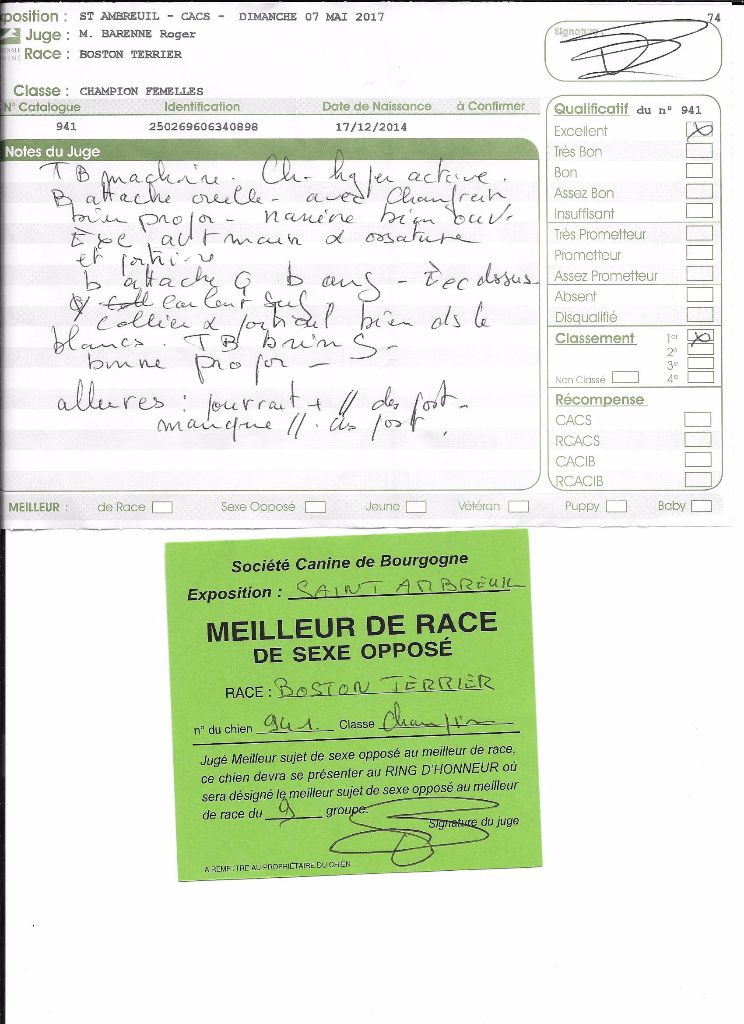 position : ST AMBREUIL - CACS - DIMANCHE 07 MAI 2017
74
Juge : M. BARENNE Roger
Race : BOSTON TERRIER
Signature
Classe : CHAMPION FEMELLES
N° Catalogue Identification Date de Naissance à Confirmer
941 250269606340898 17/12/2014
Notes du Juge
TB machoire. Ch- hyper active.
B attache oreille - avec Chanfrein
bien propor - narine bien ouv.
Exc ossature
et
b attache b - Exc dessus
couleur
Collier & bien ds le
blancs. TB
bonne propor -
allures : pourrait + // des post -
manque // ds post.
Qualificatif du n° 941
Excellent X
Très Bon
Bon
Assez Bon
Insuffisant
Très Prometteur
Prometteur
Assez Prometteur
Absent
Disqualifié
Classement 1er X
2e
3e
Non Classé 4e
Récompense
CACS
RCACS
CACIB
RCACIB
MEILLEUR : de Race Sexe Opposé Jeune Vétéran Puppy Baby
Société Canine de Bourgogne
Exposition : SAINT AMBREUIL
MEILLEUR DE RACE
DE SEXE OPPOSÉ
RACE : BOSTON TERRIER
n° du chien 941. Classe Champion
Jugé Meilleur sujet de sexe opposé au meilleur de race,
ce chien devra se présenter au RING D'HONNEUR où
sera désigné le meilleur sujet de sexe opposé au meilleur
de race du 9 groupe.
Signature du juge
A REMETTRE AU PROPRIÉTAIRE DU CHIEN